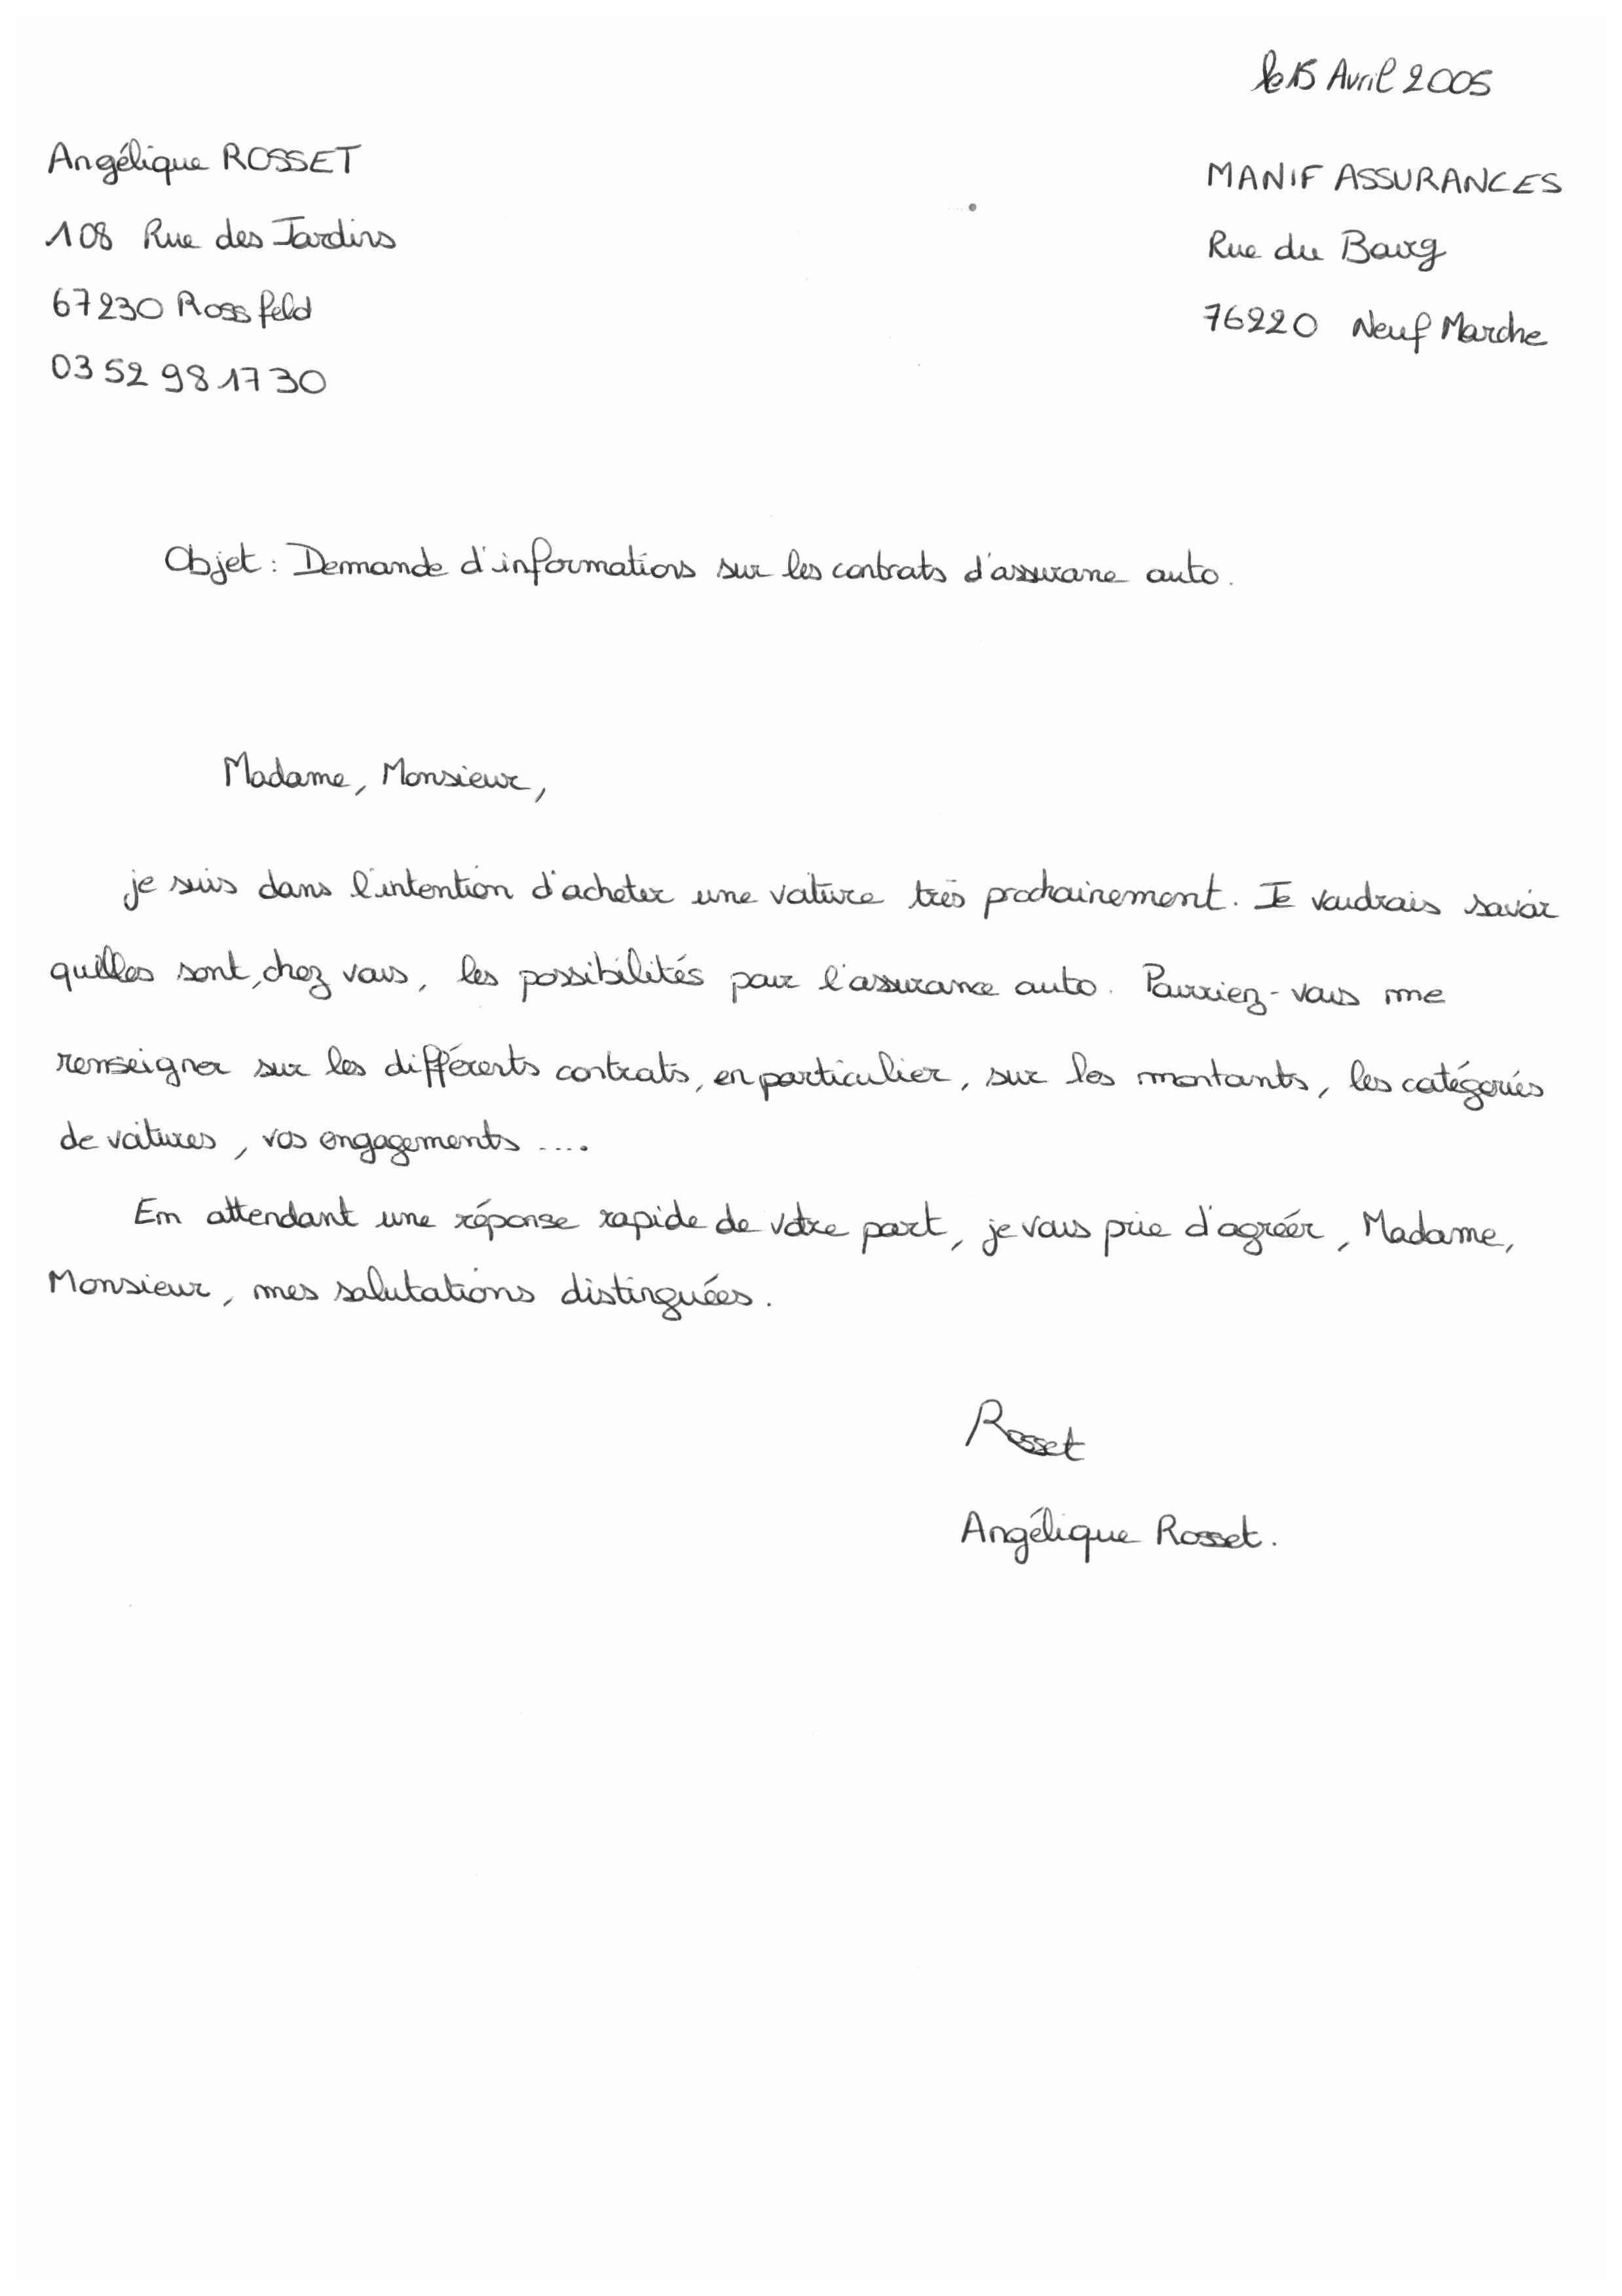 le 15 Avril 2005
Angélique ROSSET
108 Rue des Jardins
67230 Rossfeld
03 52 98 17 30
MANIF ASSURANCES
Rue du Bourg
76220 Neuf Marche
Objet : Demande d'informations sur les contrats d'assurance auto.
Madame, Monsieur,
je suis dans l'intention d'acheter une voiture très prochainement. Je voudrais savoir
quelles sont, chez vous, les possibilités pour l'assurance auto. Pourriez-vous me
renseigner sur les différents contrats, en particulier, sur les montants, les catégories
de voitures, vos engagements ....
En attendant une réponse rapide de votre part, je vous prie d'agréér, Madame,
Monsieur, mes salutations distinguées.
Rosset
Angélique Rosset.